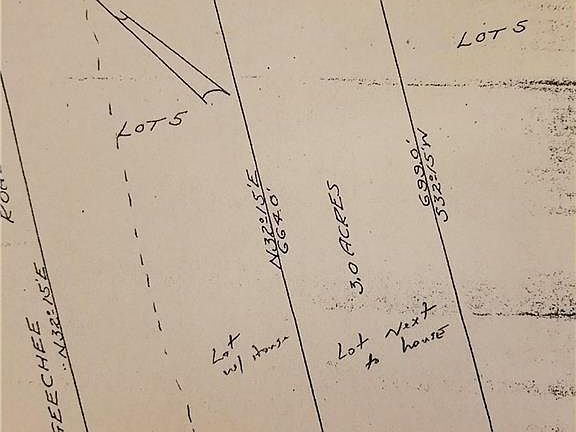 LOT 5
LOT 5
N32°15'E
664.0'
699.0'
S32°15'W
3.0 ACRES
GEECHEE
N32°15'E
Lot
w/ House
Lot Next
to house